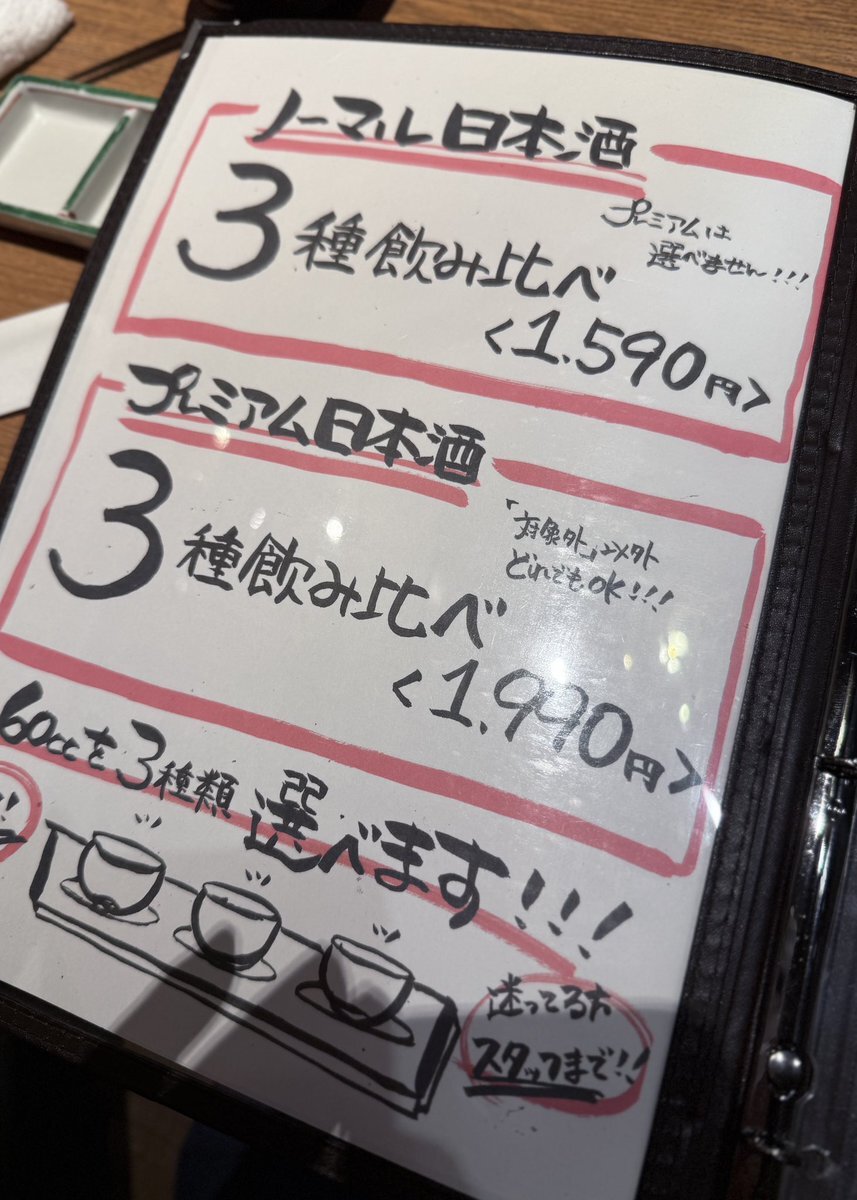 ノーマル日本酒
3種飲み比べ
プレミアムは
選べません!!!
<1.590円>
プレミアム日本酒
3種飲み比べ
「対象外」以外
どれでもOK!!!
<1.990円>
60ccを3種類選べます!!!
迷ってる方
スタッフまで!!